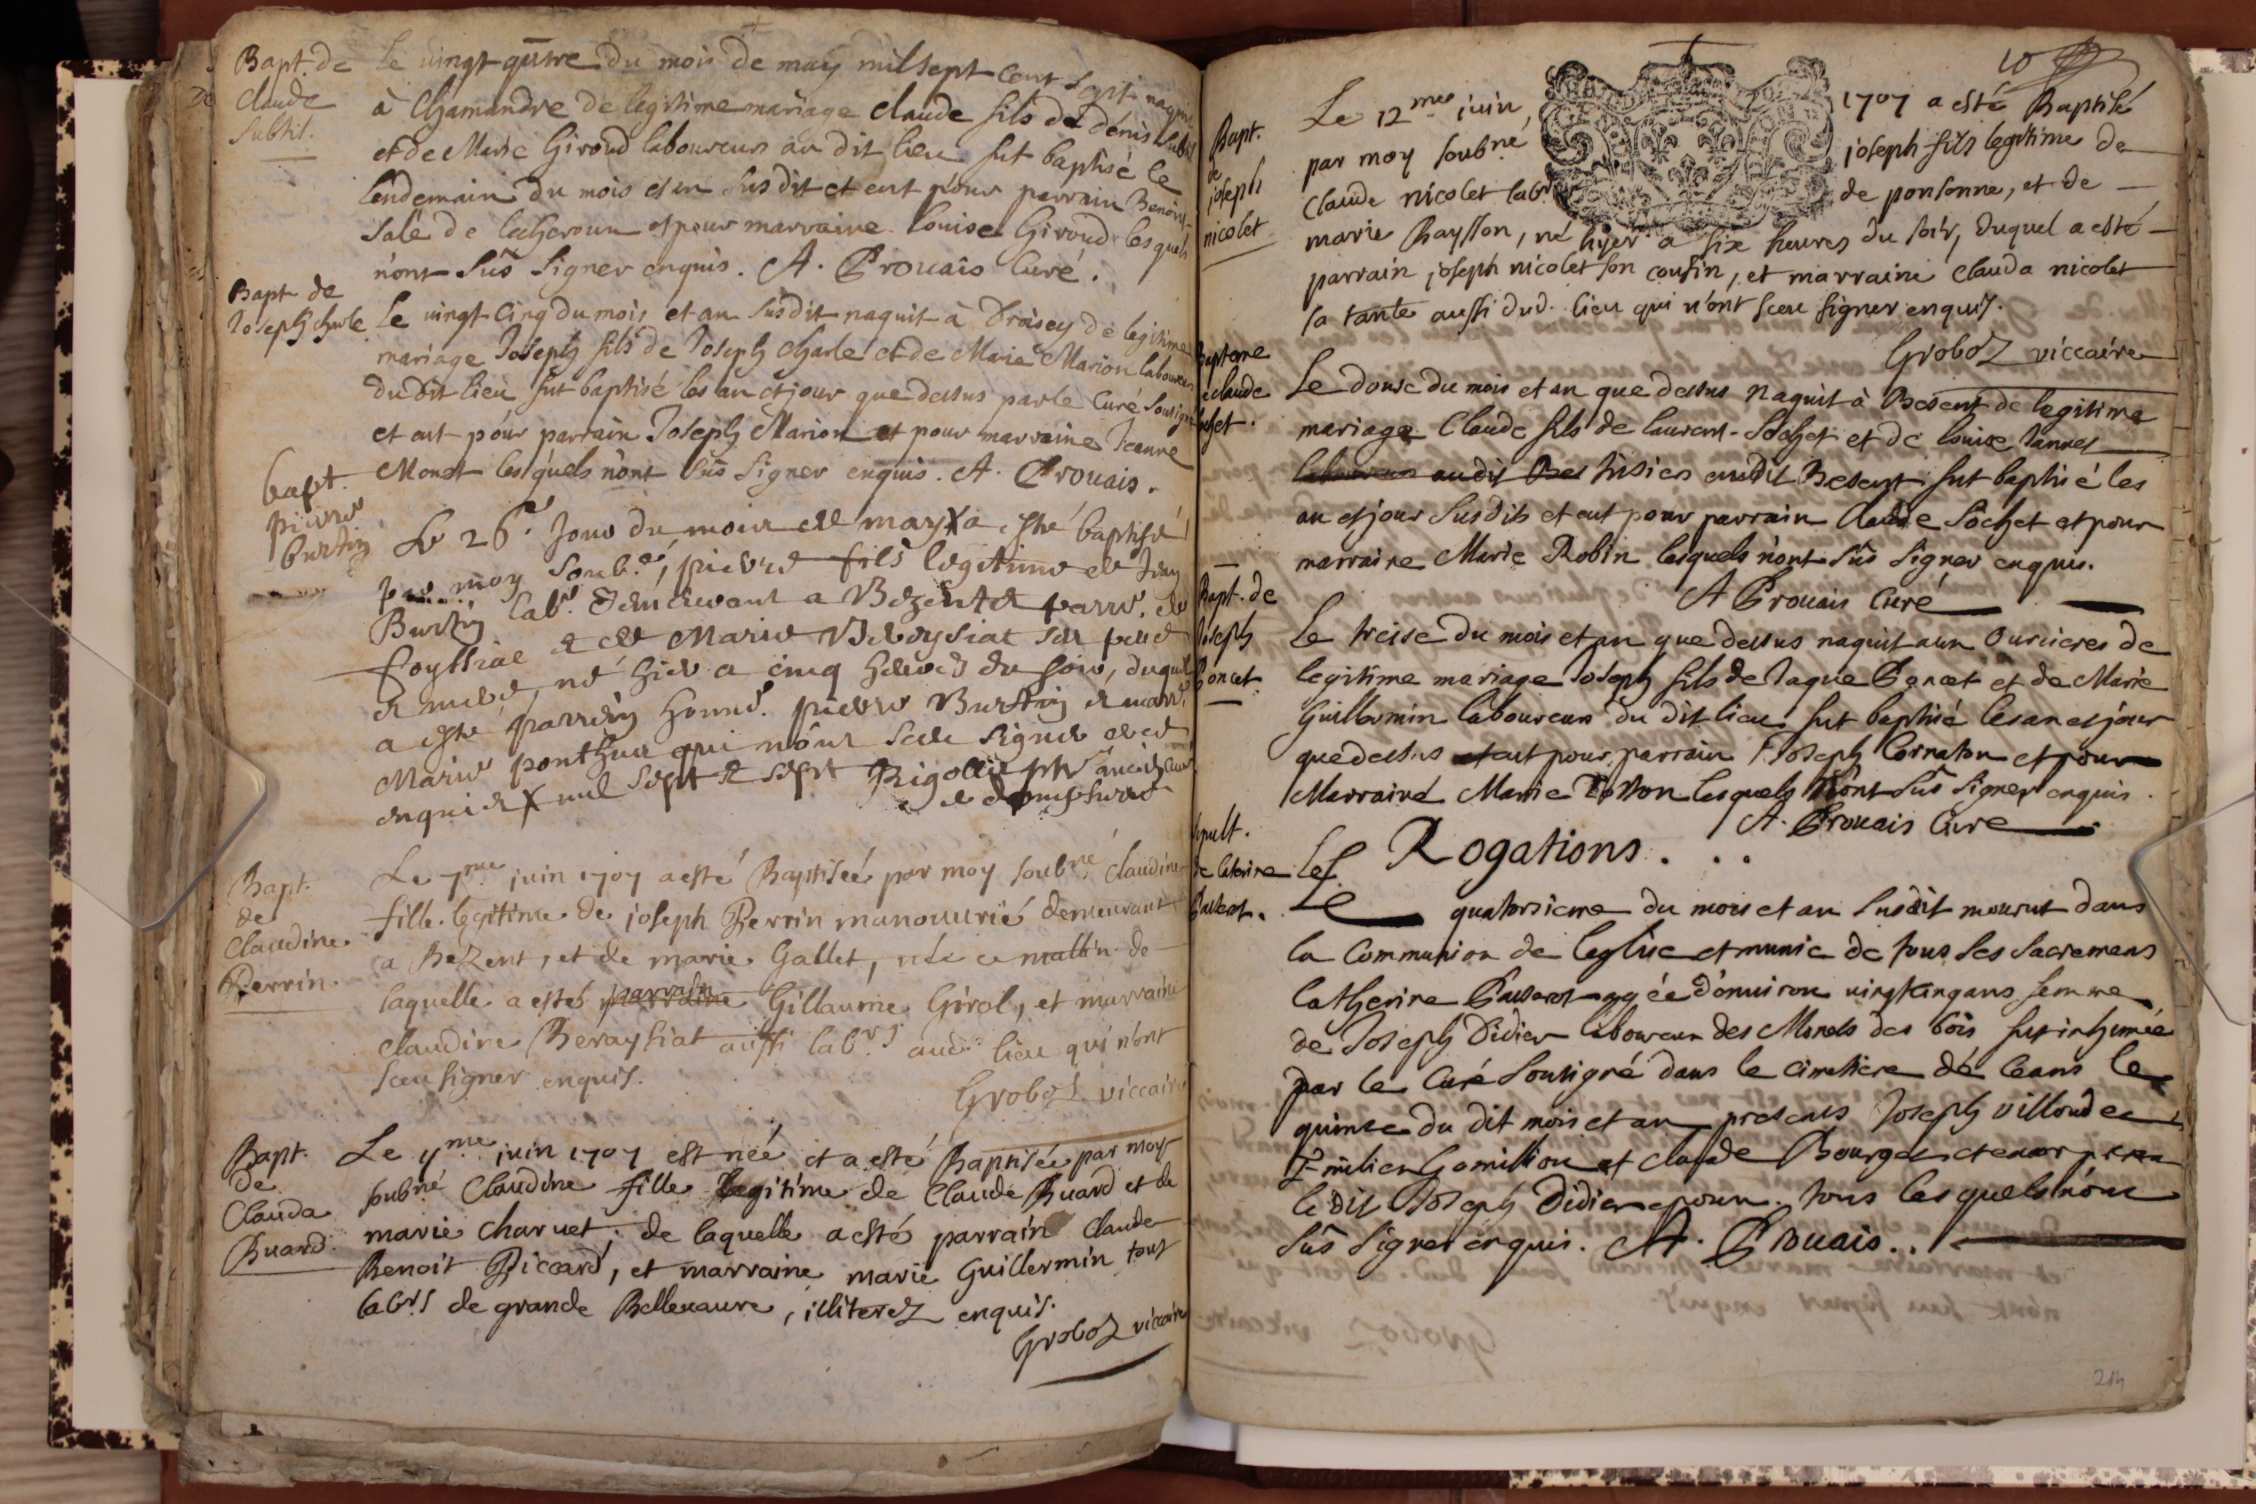 Bapt. de
Claude
Subtil.
Le vingt quatre du mois de may mil sept cent sept naquit
à Chamandre de legitime mariage Claude fils de dénis Subtil
et de Marie Giroud laboureurs au dit lieu fut baptisé le
lendemain du mois et an susdit et eut pour parrain Benoist
Salé de et pour marraine Louise Giroud lesquels
n'ont sus signer enquis. A. Prouais Curé.
Bapt de
Joseph charle
Le vingt Cinq du mois et an susdit naquit à Draisey de legitime
mariage Joseph fils de Joseph Charle et de Marie Marion laboureurs
du dit lieu fut baptisé les an et jour que dessus par le Curé Sousigné
et eut pour parrain Joseph Marion et pour marraine Jeanne
Monet lesquels n'ont sus signer enquis. A. Prouais.
bapt.
pierre
burtin
Le 26e Jour du mois de may X a esté baptisé
par moy soub.é, pierre fils legitime de Jean
Burtin lab.r demeurant a Bezent parr. de
foyssiat et de Marie Breysiat sa
né hier a cinq heures du soir, duquel
a esté parrein honne. pierre Burtin et marr.
Marie ponthus qui n'ont sceu signer
enquis X mil sept et sept Rigollet ptre ancien curé
de dompsure
Bapt.
de
Claudine
Perrin.
Le 7me juin 1707 a esté Baptisée par moy soubné Claudine
fille legitime de joseph Perrin manouurié demeurant
a BeZent, et de marie Gallet, née ce mattin de
laquelle a estés parrain Gillaume Girol, et marraine
claudine Beraysiat aussi lab.rs aud. lieu qui n'ont
sceu signer enquis.
Groboz viccaire
Bapt.
de
Clauda
Buard.
Le 9me juin 1707 est née et a esté Baptisée par moy
soubné Claudine fille legitime de Claude Buard et de
marie Charuet, de laquelle a estés parrain Claude
Benoit Piccard, et marraine marie Guillermin tous
labrs de grande Belleuaure, illiterez enquis.
Groboz viccaire
10
Bapt.
de
joseph
nicolet
Le 12me juin, 1707 a esté Baptisé
par moy soubné joseph fils legitime de
Claude nicolet labr de ponsonne, et de
marie Raysson, né hyer a six heures du soir, duquel a esté
parrain joseph nicolet son cousin, et marraine Clauda nicolet
sa tante aussi dud. lieu qui n'ont sceu signer enquis.
Groboz viccaire
Bapteme
de claude
Sochet.
Le douse du mois et an que dessus naquit à Besent de legitime
mariage Claude fils de laurent Sochet et de louise Jannet
laboureurs au dit Bes tisier audit Besent fut baptisé les
an et jour susdits et eut pour parrain Claude Sochet et pour
marraine Marie Robin lesquels n'ont sus signer enquis.
A Prouais Curé
Bapt. de
Joseph
Poncet
Le treise du mois et an que dessus naquit aux Ourcieres de
legitime mariage Joseph fils de Jaque Poncet et de Marie
Guillermin laboureurs du dit lieu fut baptisé les an et jour
que dessus et eut pour parrain Joseph Cornaton et pour
Marraine Marie lesquels n'ont sus signer enquis.
A. Prouais Cure
Les Rogations. . .
Sepult.
de Caterine
Le
quatorsieme du mois et an susdit mourut dans
la Communion de leglise et munie de tous ses sacremens
Catherine agée d'enuiron vingt cinq ans femme
de Joseph Didier laboureur des Morels des bois fut inhumée
par le Curé sousigné dans le Cimetiere de ceans le
quinse du dit mois et an presens Joseph
Emilien Gomillion et claude Bourge
le dit Joseph Didier epoux tous lesquels n'ont
sus signer enquis. A. Prouais.
214